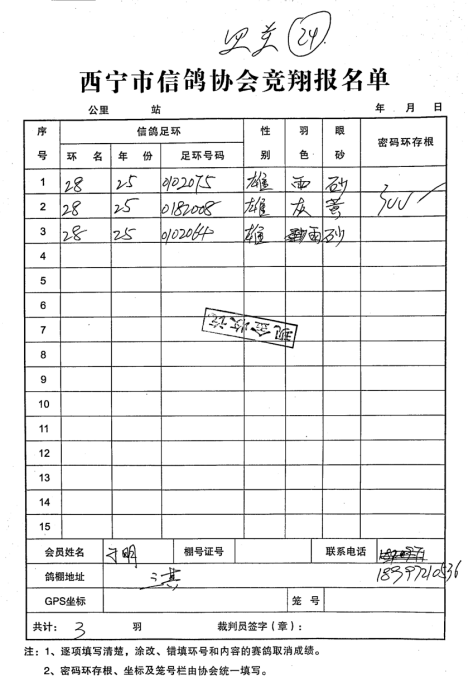 24
西宁市信鸽协会竞翔报名单
公里 站 年 月 日
序号 信鸽足环 性别 羽色 眼砂 密码环存根
环名 年份 足环号码
1 28 25 0102075 雄 雨 砂 300
2 28 25 0182008 雄 灰 黄
3 28 25 0102064 雄 雨 砂
4
5
6
7
现金收讫
8
9
10
11
12
13
14
15
会员姓名 于明 棚号证号 联系电话
鸽棚地址 三其 18397210536
GPS坐标 笼号
共计: 3 羽 裁判员签字(章):
注:1、逐项填写清楚,涂改、错填环号和内容的赛鸽取消成绩。
2、密码环存根、坐标及笼号栏由协会统一填写。